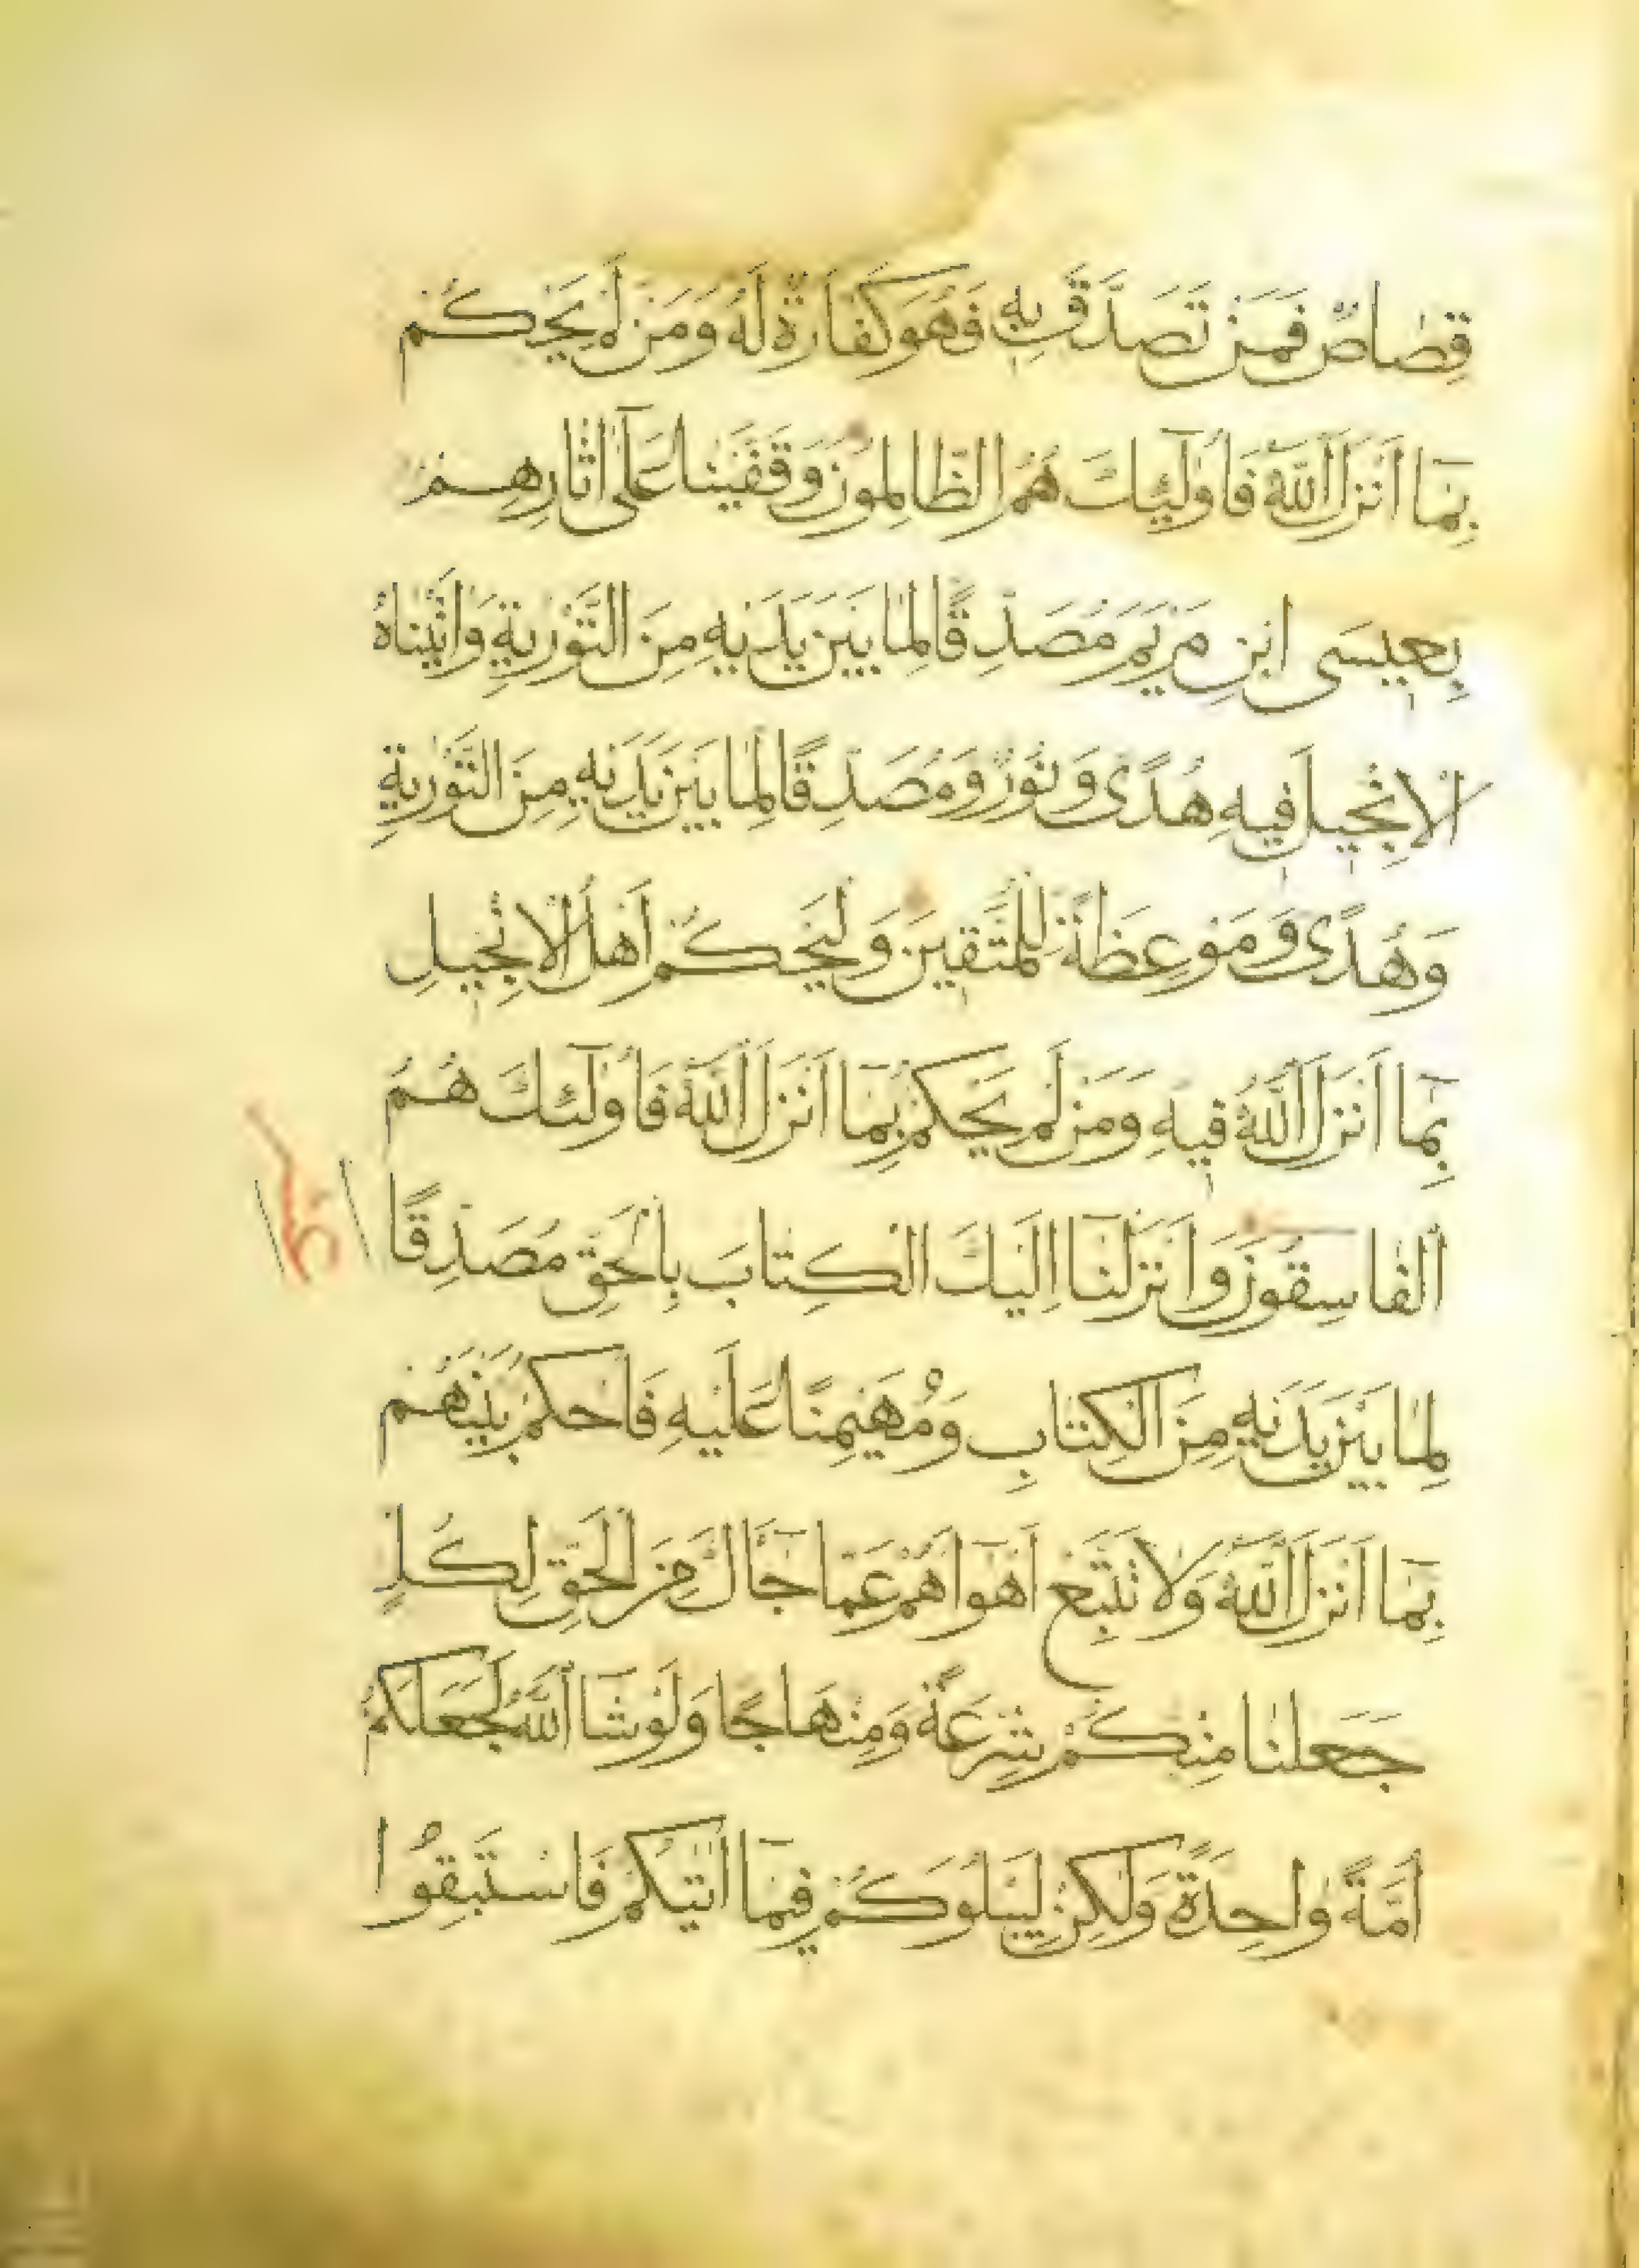 قِصَاصٌ فَمَنْ تَصَدَّقَ بِهِ فَهُوَ كَفَّارَةٌ لَهُ وَمَنْ لَمْ يَحْكُمْ
بِمَا اَنْزَلَ اللّٰهُ فَاُولٰٓئِكَ هُمُ الظَّالِمُونَ وَقَفَّيْنَا عَلٰٓى اٰثَارِهِمْ
بِعِيسَى ابْنِ مَرْيَمَ مُصَدِّقًا لِمَا بَيْنَ يَدَيْهِ مِنَ التَّوْرٰيةِ وَاٰتَيْنَاهُ
الْاِنْجِيلَ فِيهِ هُدًى وَنُورٌ وَمُصَدِّقًا لِمَا بَيْنَ يَدَيْهِ مِنَ التَّوْرٰيةِ
وَهُدًى وَمَوْعِظَةً لِلْمُتَّقِينَ وَلْيَحْكُمْ اَهْلُ الْاِنْجِيلِ
بِمَٓا اَنْزَلَ اللّٰهُ فِيهِ وَمَنْ لَمْ يَحْكُمْ بِمَٓا اَنْزَلَ اللّٰهُ فَاُولٰٓئِكَ هُمُ
الْفَاسِقُونَ وَاَنْزَلْنَٓا اِلَيْكَ الْكِتَابَ بِالْحَقِّ مُصَدِّقًا
لِمَا بَيْنَ يَدَيْهِ مِنَ الْكِتَابِ وَمُهَيْمِنًا عَلَيْهِ فَاحْكُمْ بَيْنَهُمْ
بِمَٓا اَنْزَلَ اللّٰهُ وَلَا تَتَّبِعْ اَهْوَٓاهُمْ عَمَّا جَٓاكَ مِنَ الْحَقِّ لِكُلٍّ
جَعَلْنَا مِنْكُمْ شِرْعَةً وَمِنْهَاجًا وَلَوْ شَٓا اللّٰهُ لَجَعَلَكُمْ
اُمَّةً وَاحِدَةً وَلٰكِنْ لِيَبْلُوَكُمْ فِيمَٓا اٰتٰيكُمْ فَاسْتَبِقُوا